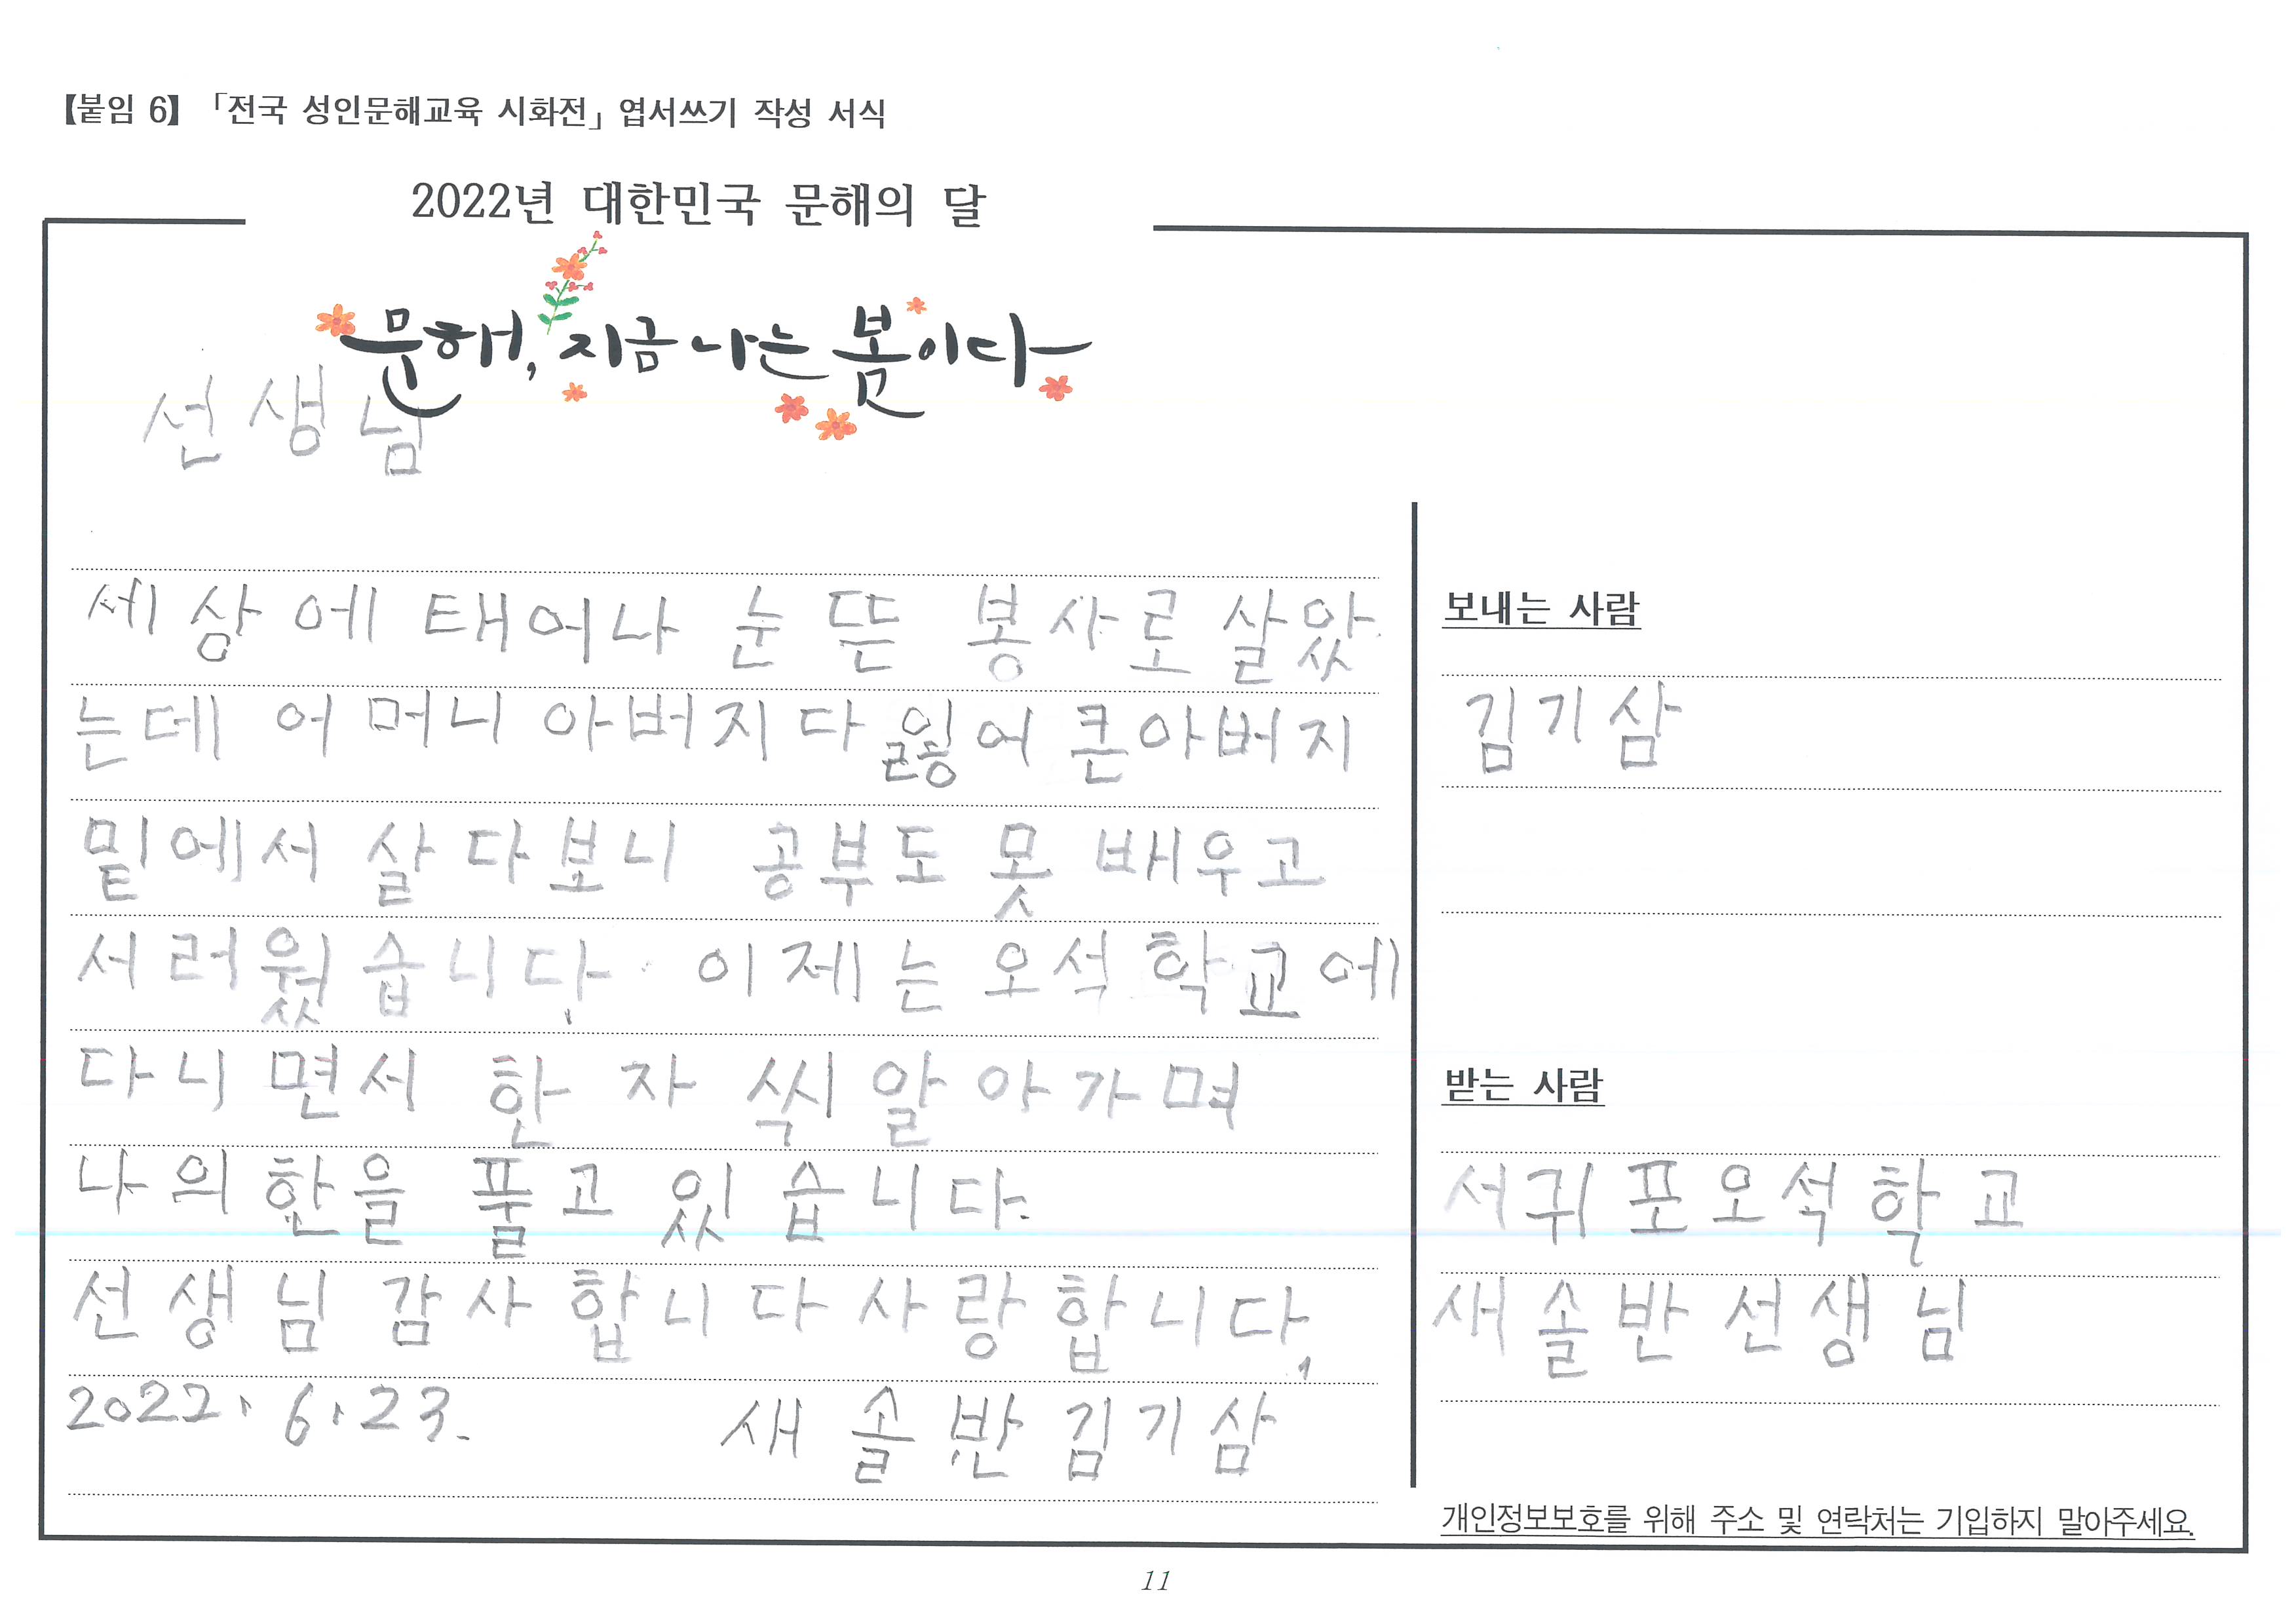 【붙임 6】 「전국 성인문해교육 시화전」 엽서쓰기 작성 서식
2022년 대한민국 문해의 달
문해, 지금 나는 봄이다
선생님
세상에 태어나 눈 뜬 봉사로 살았
는데 어머니 아버지 다 잃어 큰아버지
밑에서 살다보니 공부도 못 배우고
서러웠습니다. 이제는 오석학교에
다니면서 한 자 씩 알아가며
나의 한을 풀고 있습니다.
선생님 감사합니다 사랑합니다.
2022. 6. 23. 새솔반 김기삼
보내는 사람
김기삼
받는 사람
서귀포오석학교
새솔반 선생님
개인정보보호를 위해 주소 및 연락처는 기입하지 말아주세요.
11